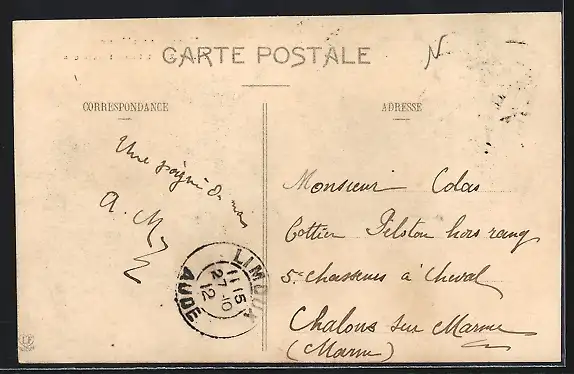 CARTE POSTALE
N
CORRESPONDANCE
ADRESSE
Une poignée de main
Monsieur Colas
hors rang
5e chasseurs à cheval
Chalons sur Marne
(Marne)
LIMOUX
11 15
27-10
12
AUDE